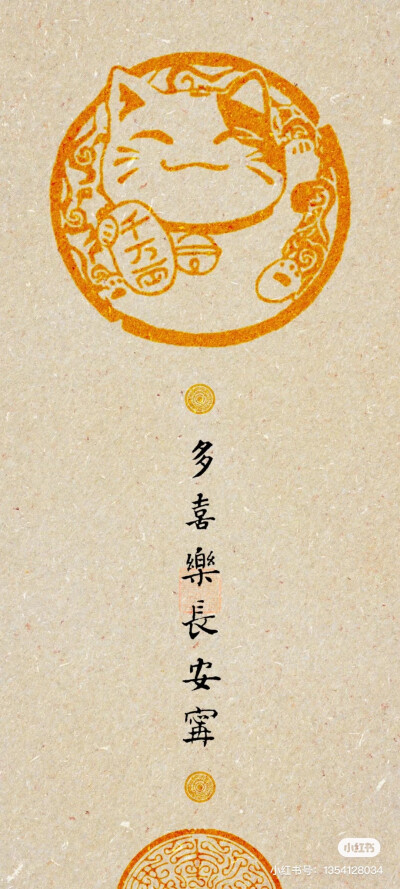 千万両
多喜樂長安寗
小红书
小红书号：1354128034